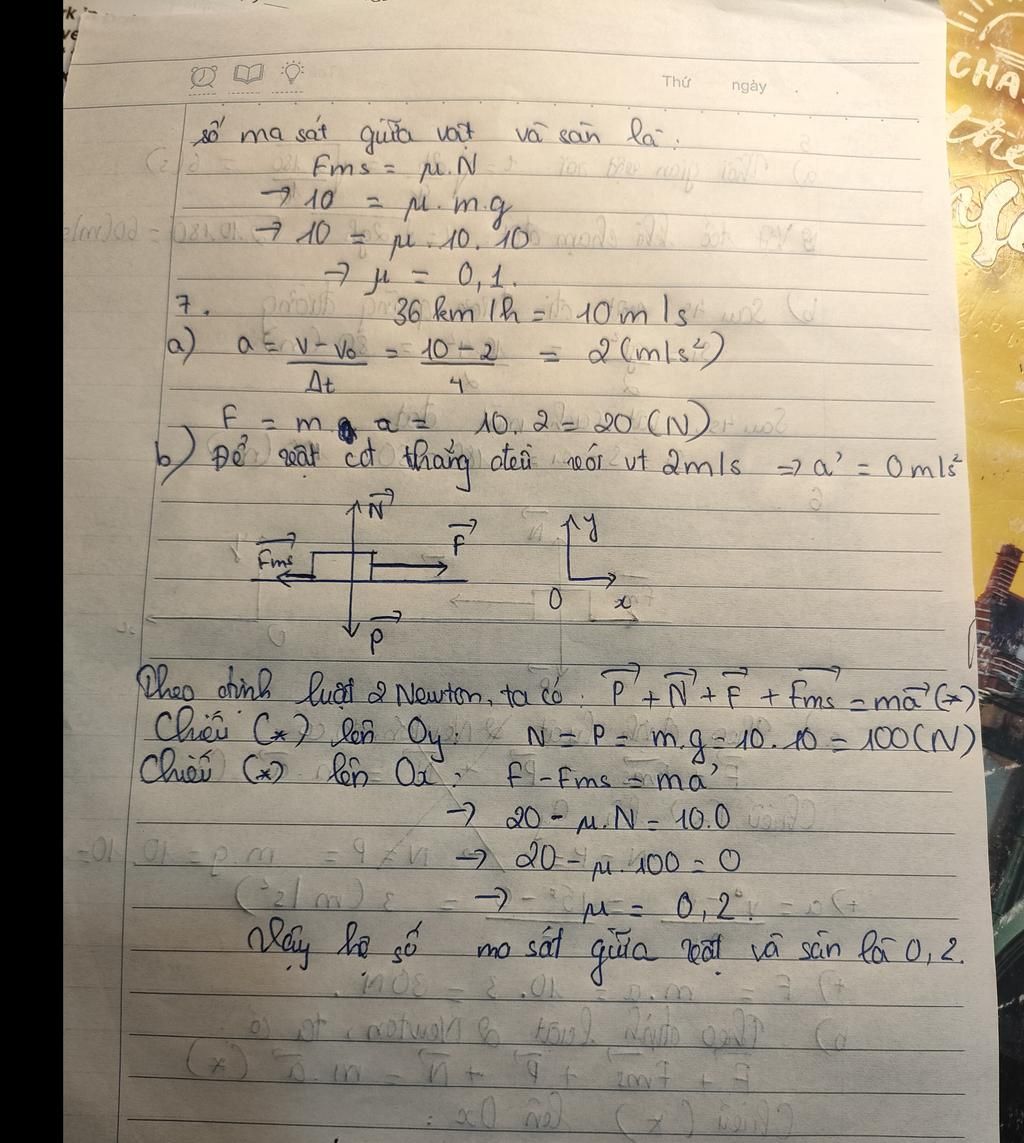 Thứ ngày
số ma sát giữa vật và sàn là:
Fms = μ.N
→ 10 = μ.m.g
→ 10 = μ.10.10
→ μ = 0,1.
7. 36 km/h = 10 m/s
a) a = (v - v₀)/Δt = (10 - 2)/4 = 2 (m/s²)
F = m a = 10.2 = 20 (N)
b) Để vật cđ thẳng đều với vt 2m/s ⇒ a' = 0 m/s²
N⃗
F⃗ms F⃗ y
O x
P⃗
Theo định luật 2 Newton, ta có: P⃗ + N⃗ + F⃗ + F⃗ms = ma⃗ (*)
Chiếu (*) lên Oy: N = P = m.g = 10.10 = 100 (N)
Chiếu (*) lên Ox: F - Fms = ma'
→ 20 - μ.N = 10.0
→ 20 - μ.100 = 0
→ μ = 0,2.
Vậy hệ số ma sát giữa vật và sàn là 0,2.
CHA
the